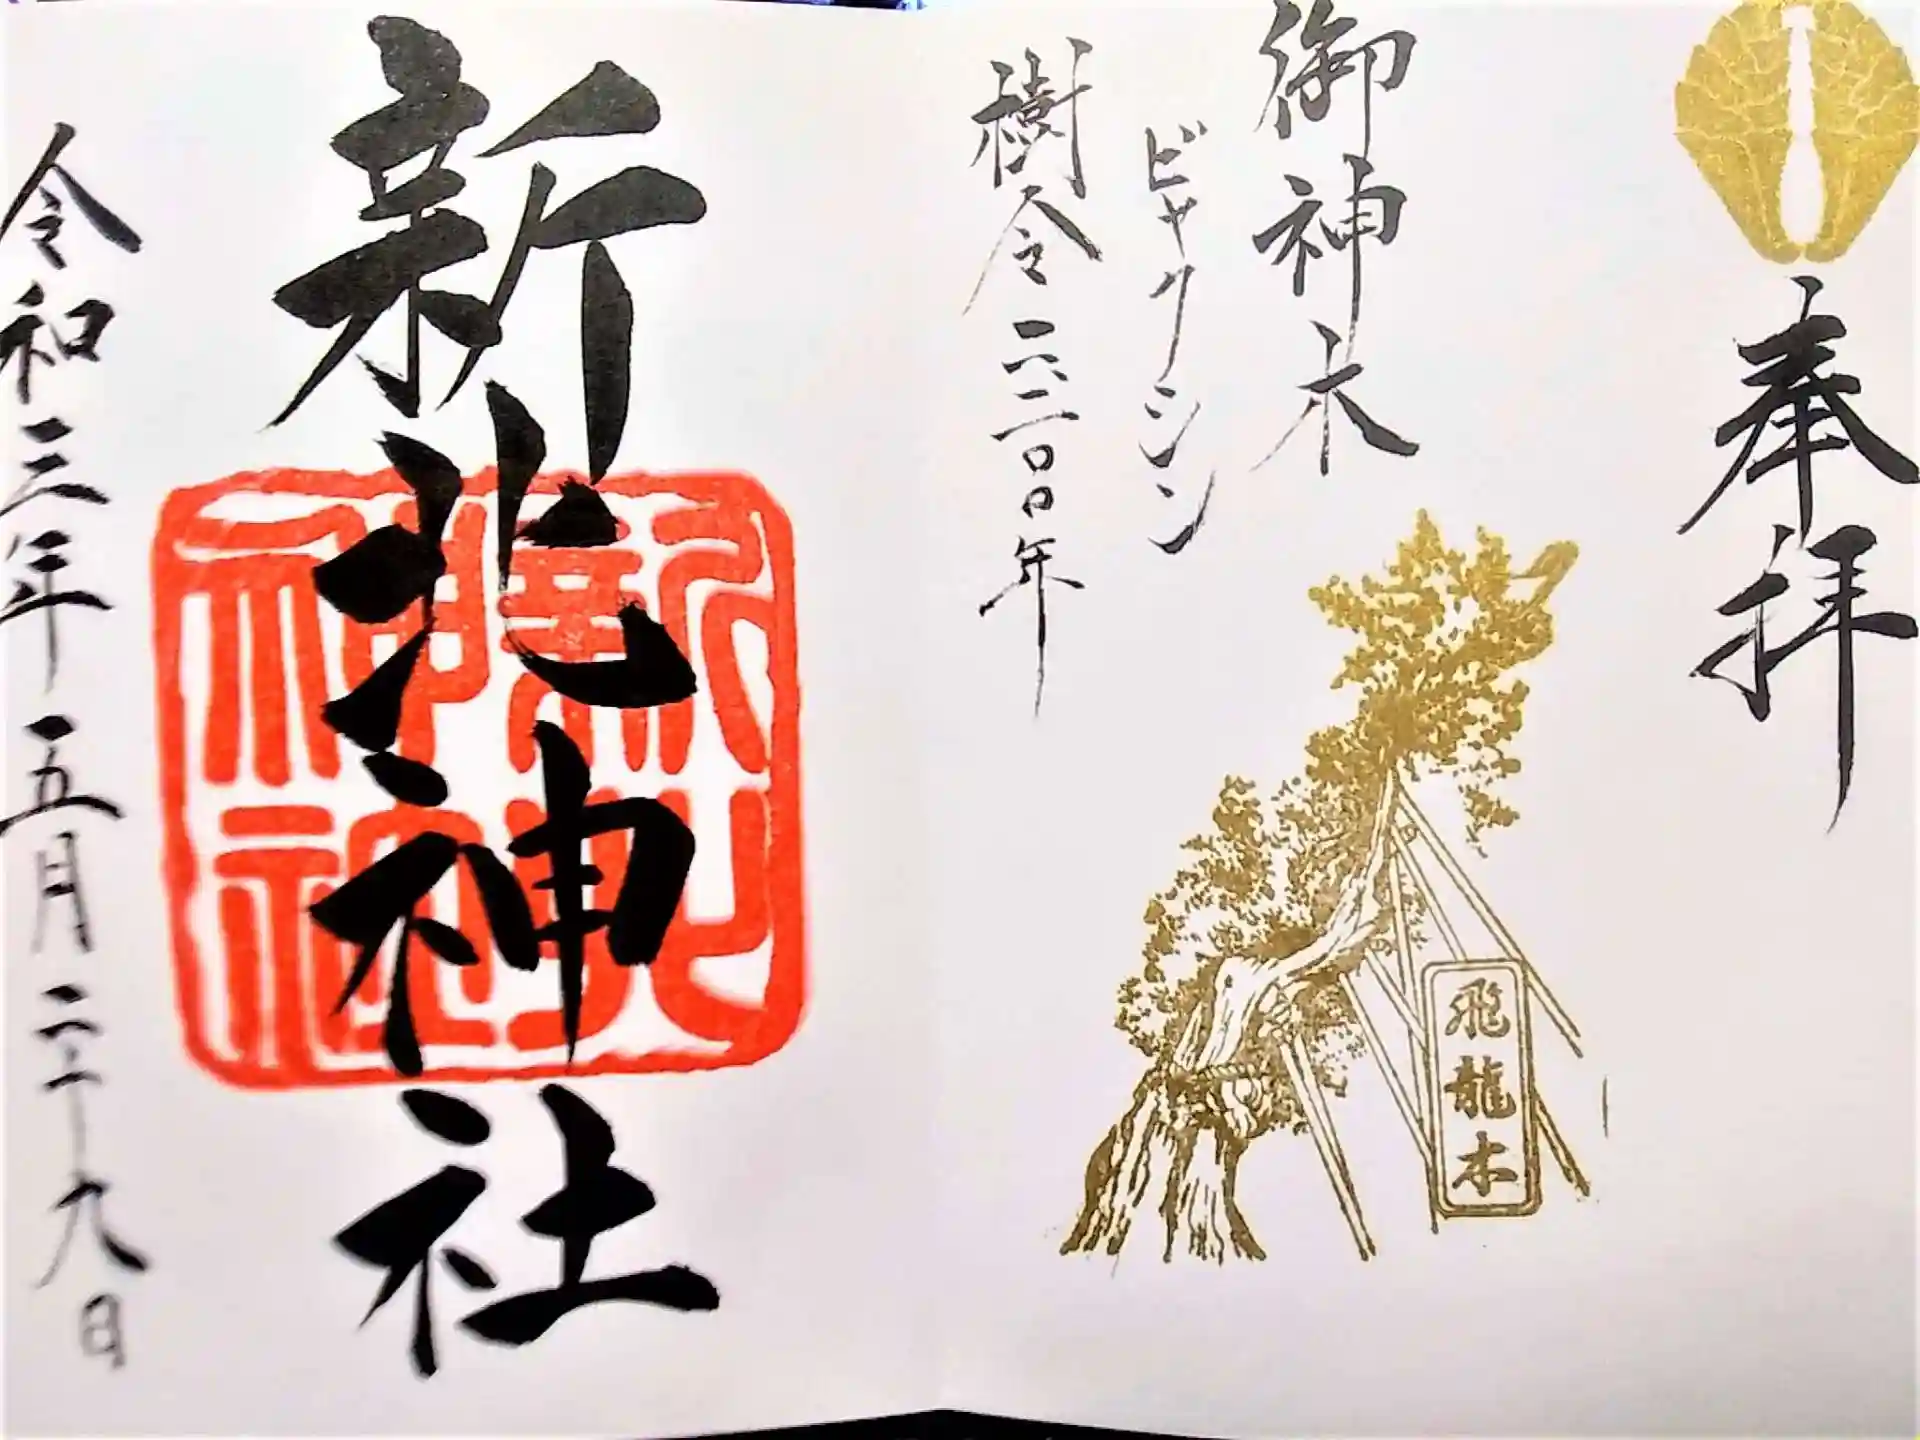 奉拝
御神木
ビャクシン
樹令二二〇〇年
飛龍木
新北神社
新北
神社
令和三年五月二十九日